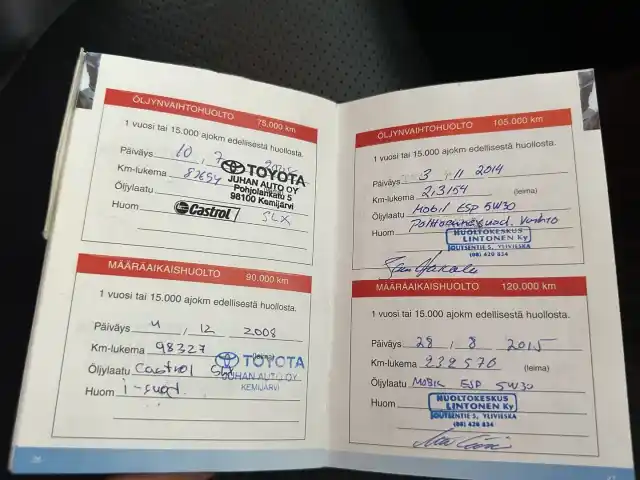 ÖLJYNVAIHTOHUOLTO 75.000 km
1 vuosi tai 15.000 ajokm edellisestä huollosta.
Päiväys 10 . 7
Km-lukema 87654
TOYOTA
JUHAN AUTO OY
Pohjolankatu 5
98100 Kemijärvi
Öljylaatu
Huom Castrol SLX
MÄÄRÄAIKAISHUOLTO 90.000 km
1 vuosi tai 15.000 ajokm edellisestä huollosta.
Päiväys 4 . 12 2008
Km-lukema 98327 (leima)
TOYOTA
Öljylaatu Castrol
JUHAN AUTO OY
KEMIJÄRVI
Huom
26
ÖLJYNVAIHTOHUOLTO 105.000 km
1 vuosi tai 15.000 ajokm edellisestä huollosta.
Päiväys 3 . 11 2014
Km-lukema 213154 (leima)
Öljylaatu Mobil ESP 5W30
Huom
HUOLTOKESKUS
LINTONEN Ky
JOUTSENTIE 5, YLIVIESKA
(08) 420 834
MÄÄRÄAIKAISHUOLTO 120.000 km
1 vuosi tai 15.000 ajokm edellisestä huollosta.
Päiväys 28 . 8 2015
Km-lukema 232570 (leima)
Öljylaatu Mobil ESP 5W30
Huom
HUOLTOKESKUS
LINTONEN Ky
JOUTSENTIE 5, YLIVIESKA
(08) 420 834